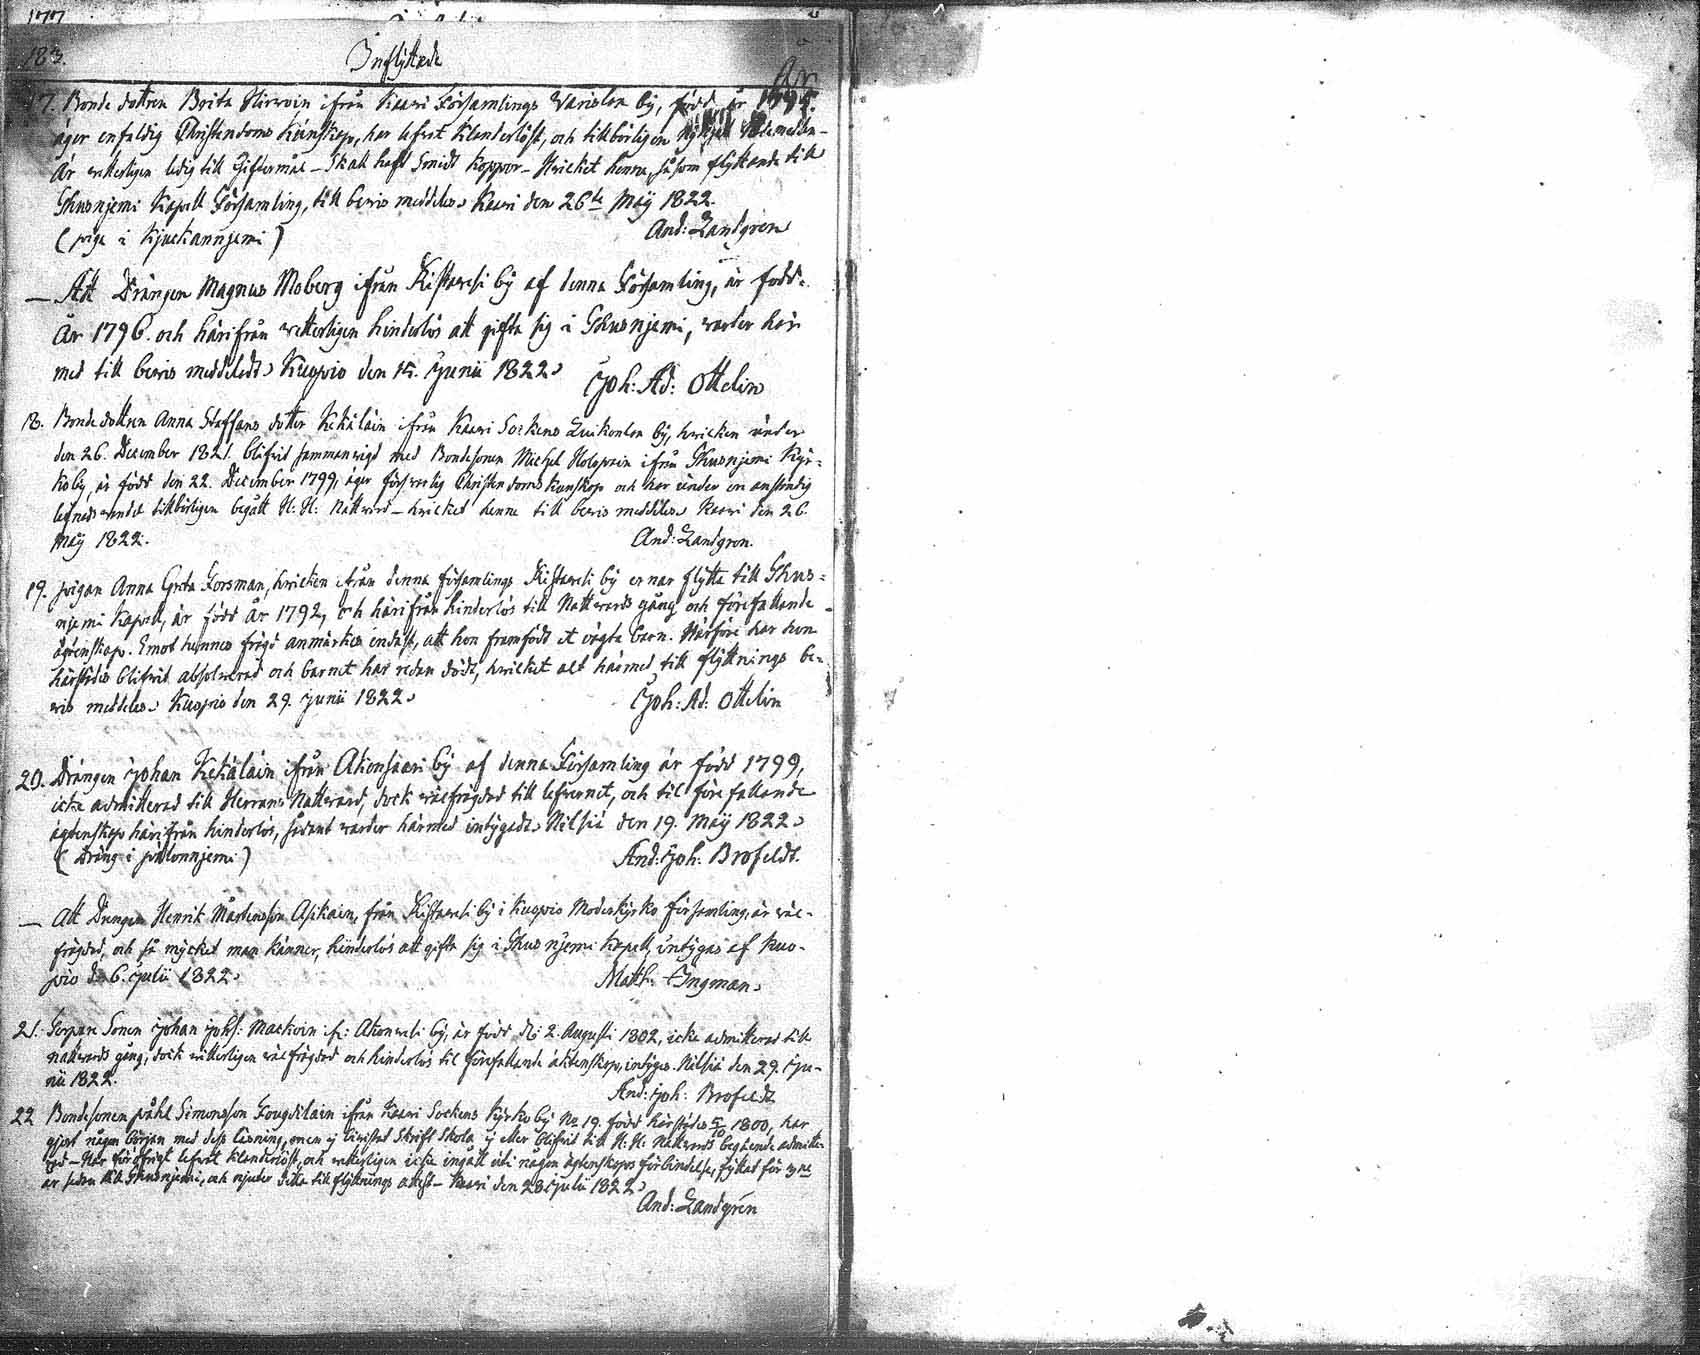 177
183.
Inflÿttade
År
17. Bonde dottren Brita Hirvoin ifrån Kaavi Församlings Varislax bÿ, född år 1795.
äger enfaldig Christendoms Kunskap, har lefvat klanderlöst, och tillbörligen
Är vetterligen ledig till Giftermål – Skall haft Smidt Koppor – Hvilket henne, såsom flÿttande till
Thusnjemi Kapell Församling, till bevis meddelas. Kaavi den 26te Maÿ 1822.
And: Landgren
(piga i Kjuckannjemi)
— Att Drängen Magnus Moberg ifrån Kistavesi bÿ af denna Församling, är född
År 1796. och härifrån vetterligen hinderlös att gifta sig i Thusnjemi, varder här
med till bevis meddeladt. Kuopio den 15. Junii 1822.
Joh: Ad: Ottelin
18. Bonde dottren Anna Staffans dotter Kekäläin ifrån Kaavi Sockens Luikonlax bÿ, hvilken under
den 26. December 1821. blifvit sammanvigd med Bondesonen Michel Holopain ifrån Thusnjemi Kÿr=
koby, är född den 22. December 1799, äger försvarlig Christendoms kunskap och har under en anständig
lefnads vandel tillbörligen begått H: H: Nattvard – hvilket henne till bevis meddelas. Kaavi den 26.
Maÿ 1822.
And: Landgren.
19. pigan Anna Greta Forsman, hvilken ifrån denna församlings Kistavesi bÿ ernar flÿtta till Thus=
njemi Kapell, är född år 1792, och härifrån hinderlös till Nattvards gång och förefallande
ägtenskap. Emot hennes frägd anmärkes endast, att hon framfödt et oägta barn. Härföre har hon
härstädes blifvit absolverad och barnet har redan dödt, hvilket alt härmed till flÿttnings be=
vis meddelas. Kuopio den 29. Junii 1822.
Joh: Ad: Ottelin
20. Drängen Johan Kekäläin ifrån Akonsaari bÿ af denna Församling är född 1799,
icke admitterad till Herrans Nattvard, dock välfrägdad till lefvernet, och til förefallande
ägtenskap härifrån hinderlös, sådant varder härmed intÿgadt. Nilsiä den 19. Maÿ 1822.
(Dräng i pälonnjemi)
And: Joh: Brofeldt.
— Att Drängen Henrik Mårtensson Asikain, från Kistavesi bÿ i Kuopio Moderkÿrko församling, är väl=
frägdad, och så mÿcket man känner, hinderlös att gifta sig i Thusnjemi Kapell, intÿgas af Kuo-
pio d. 6. Julii 1822.
Matth: Ingman.
21. Torpare Sonen Johan Johs: Maskoin fr: Akonvesi bÿ, är född d: 2. Augusti 1802, icke admitterad till
nattvards gång, dock vetterligen välfrägdad och hinderlös til förefallande äktenskap, intÿgas. Nilsiä den 29. Ju-
nii 1822.
And: Joh: Brofeldt
22 Bondesonen påhl Simonsson Fougdilain ifrån Kaavi Sockens Kÿrkobÿ No 19. född härstädes 5/10 1800, har
gjort någon början med dess läsning, men ej bivistad Skrift Skola ej eller blifvit till H: H: Nattvards begående admitte-
rad – Har för öfrigt lefvat klanderlöst, och vetterligen icke ingått uti någon ägtenskaps förbindelse, flÿttad för
år sedan till Thusnjemi, och njuter detta till flÿttnings attest – Kaavi den 28 Julii 1822.
And: Landgrén